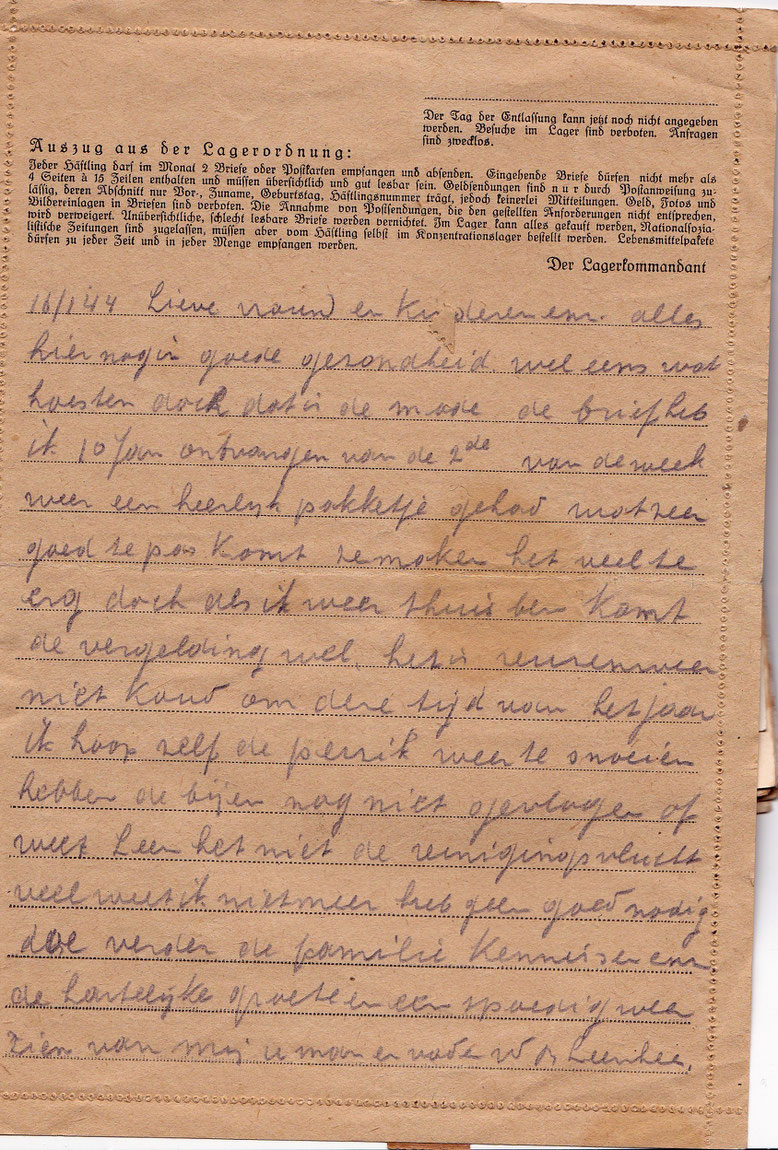 Der Tag der Entlassung kann jetzt noch nicht angegeben
werden. Besuche im Lager sind verboten. Anfragen
sind zwecklos.
Auszug aus der Lagerordnung:
Jeder Häftling darf im Monat 2 Briefe oder Postkarten empfangen und absenden. Eingehende Briefe dürfen nicht mehr als
4 Seiten à 15 Zeilen enthalten und müssen übersichtlich und gut lesbar sein. Geldsendungen sind nur durch Postanweisung zu-
lässig, deren Abschnitt nur Vor-, Zuname, Geburtstag, Häftlingsnummer trägt, jedoch keinerlei Mitteilungen. Geld, Fotos und
Bildereinlagen in Briefen sind verboten. Die Annahme von Postsendungen, die den gestellten Anforderungen nicht entsprechen,
wird verweigert. Unübersichtliche, schlecht lesbare Briefe werden vernichtet. Im Lager kann alles gekauft werden, Nationalsozia-
listische Zeitungen sind zugelassen, müssen aber vom Häftling selbst im Konzentrationslager bestellt werden. Lebensmittelpakete
dürfen zu jeder Zeit und in jeder Menge empfangen werden.
Der Lagerkommandant
16/1 44 Lieve vrouw en Kinderen enz. alles
hier nog in goede gezondheid. wel eens wat
hoesten doch dat is de mode de brief heb
ik 10 Jan ontvangen van de 2de van de week
weer een heerlijk pakketje gehad wat zeer
goed te pas komt ze maken het veel te
erg doch als ik weer thuis ben komt
de vergelding wel. het is reuzenweer
niet koud om deze tijd van het jaar
ik hoop zelf de perzik weer te snoeien
hebben de bijen nog niet gevlogen of
weet Leen het niet de reinigingsvlucht
veel weet ik niet meer heb geen goed nodig
doe verder de familie Kennissen enz
de hartelijke groeten en een spoedig weer
zien van mij u man en vader